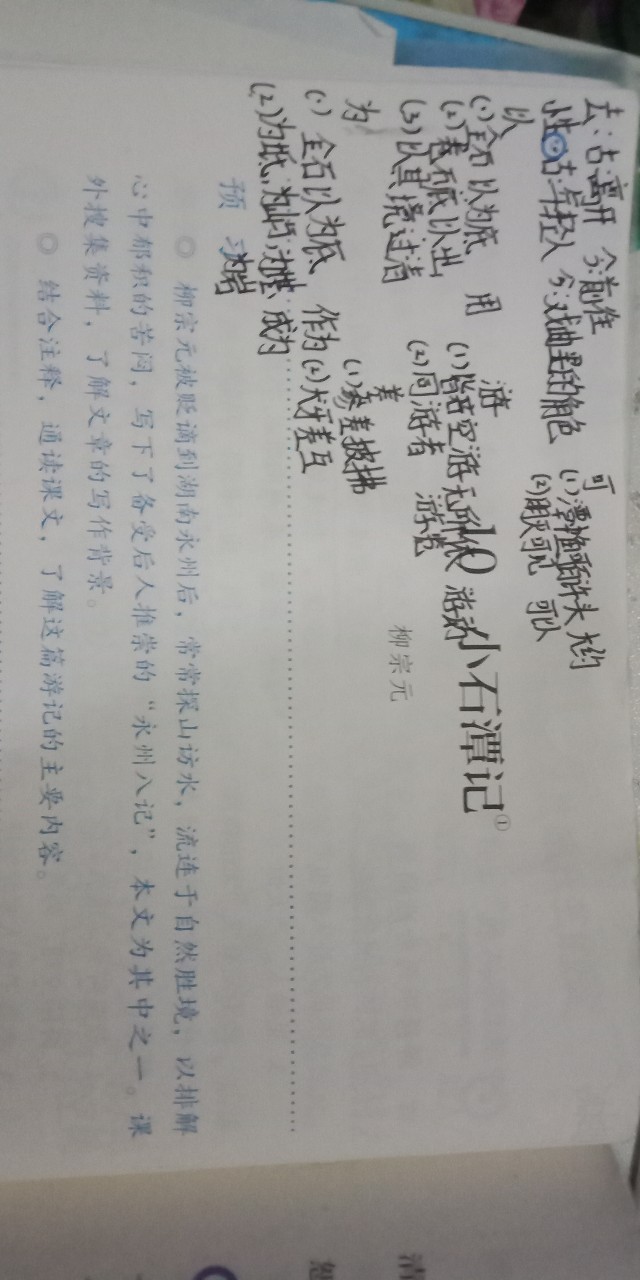 去：古：离开 今：前往
古：年轻人 今：戏曲里的角色
可
(1)潭中鱼可百许头 大约
(2)可以
以
(1)全石以为底 用
(2)卷石底以出
(3)以其境过清
游
(1)皆若空游无所依 游动
(2)同游者 游览
为
(1)全石以为底 作为
(2)为坻，为屿，为嵁，为岩 成为
差
(1)参差披拂
(2)犬牙差互
10 小石潭记①
柳宗元
预习
◎ 柳宗元被贬谪到湖南永州后，常常探山访水，流连于自然胜境，以排解
心中郁积的苦闷，写下了备受后人推崇的“永州八记”，本文为其中之一。课
外搜集资料，了解文章的写作背景。
◎ 结合注释，通读课文，了解这篇游记的主要内容。
清